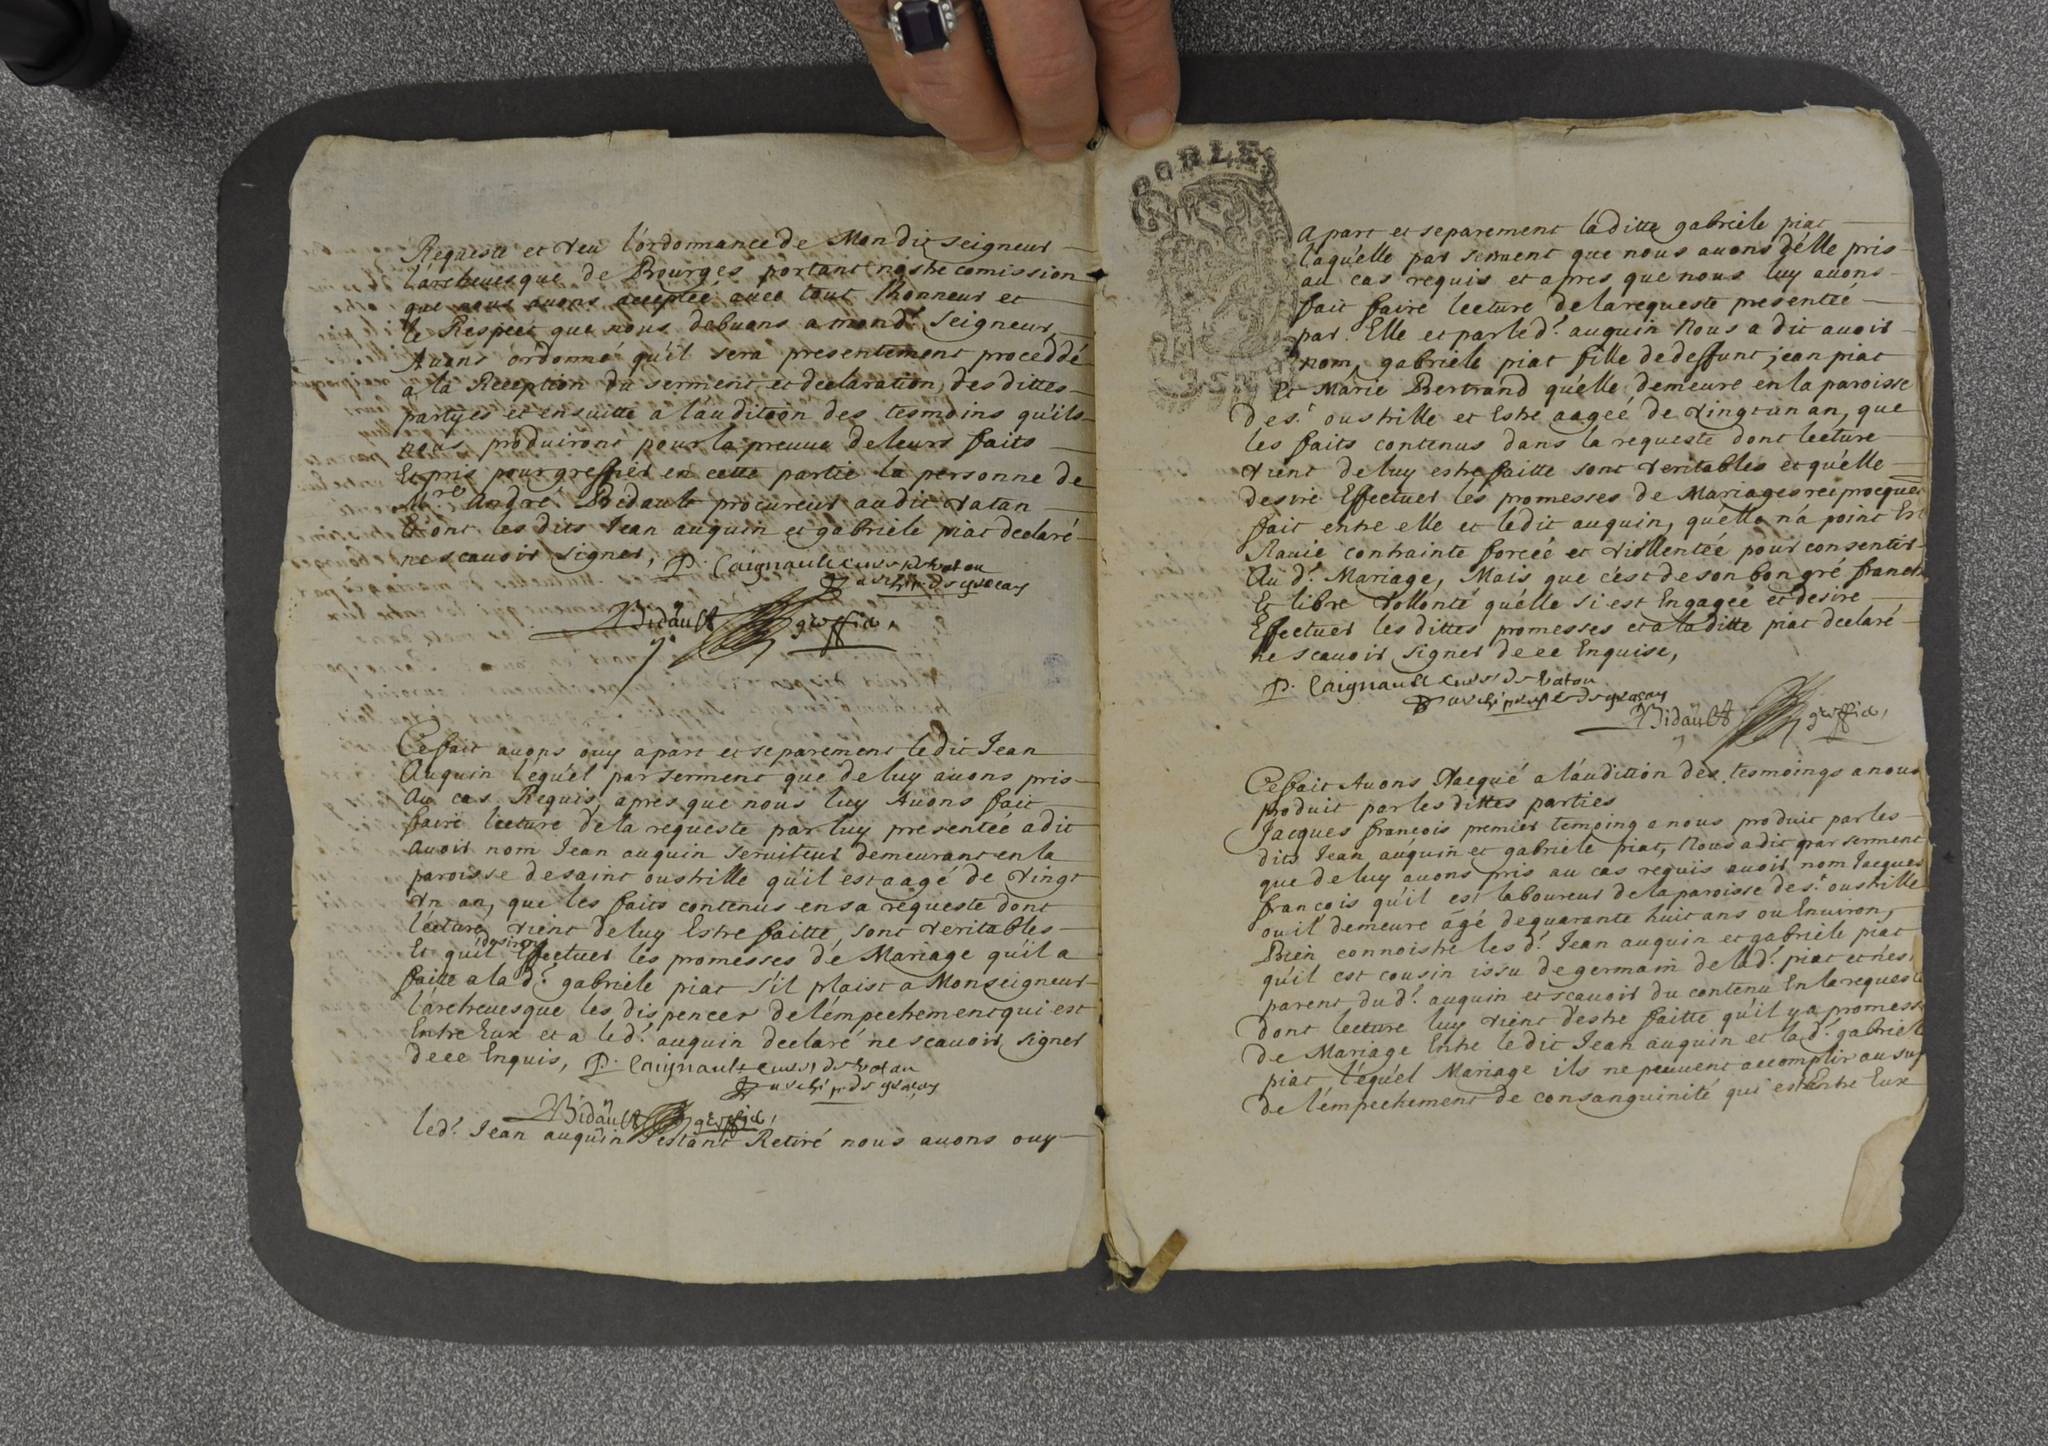 Requeste et veu l'ordonnance de Mondit seigneur
l'archevesque de Bourges portant nostre comission
que nous auons acceptée auec tout l'honneur et
le Respect que nous debuons a mond.t Seigneur,
Auons ordonné qu'il sera presentement proceddé
a la Reception du serment et declaration des dittes
partyes et ensuitte a l'audition des tesmoins qu'ils
nous produiront pour la preuue de leurs faits
Et pris pour greffier en cette partie la personne de
M.re André Bidault procureur audit Vatan
Et ont lesdits Jean auquin et gabriele piat declaré
ne scauoir signer, P. Caignault curé de Vatan
Bidault greffier,
Ce fait auons ouy apart et separement ledit Jean
Auquin lequel par serment que de luy auons pris
Au cas Requis, apres que nous luy Auons fait
faire lecture de la requeste par luy presenteé a dit
auoir nom Jean auquin seruiteur demeurant en la
paroisse de saint oustrille qu'il est aagé de vingt
vn an, que les faits contenus en sa requeste dont
lecture vient de luy Estre faitte, sont veritables
Et qu'il desire Effectuer les promesses de Mariage qu'il a
faitte a la d.e gabriele piat s'il plaist a Monseigneur
l'archeuesque les dispencer de l'empechement qui est
Entre Eux et a led.t auquin declaré ne scauoir signer
de ce Enquis, P. Caignault curé de Vatan
Bidault greffier,
led.t Jean auquin estant Retiré nous auons ouy
DOBLE
apart et separement laditte gabriele piat
laquelle par serment que nous auons d'elle pris
au cas requis et apres que nous luy auons
fait faire lecture de la requeste presenteé
par Elle et par led.t auquin Nous a dit auoir
nom gabriele piat fille de deffunt jean piat
Et Marie Bertrand qu'elle demeure en la paroisse
de s.t oustrille et Estre aageé de vingt un an, que
les faits contenus dans la requeste dont lecture
vient de luy estre faitte sont veritables et qu'elle
desire Effectuer les promesses de Mariages reciprocques
fait entre elle et ledit auquin, qu'elle n'a point Esté
Rauie contrainte forceé et viollenteé pour consentir
Au d.t Mariage, Mais que c'est de son bon gré franche
Et libre vollonté qu'elle si est Engageé et desire
Effectuer les dittes promesses et a laditte piat declaré
ne scauoir signer de ce Enquise,
P. Caignault curé de Vatan
Bidault greffier,
Ce fait Auons Vacqué a l'audition des tesmoings a nous
produit par les dittes parties
Jacques françois premier temoing a nous produit par les
dits Jean auquin et gabriele piat, Nous a dit par serment
que de luy auons pris au cas requis auoir nom Jacques
françois qu'il est laboureur de la paroisse de s.t oustrille
ou il demeure âgé de quarante huit ans ou Enuiron,
Bien connoistre les d.t Jean auquin et gabriele piat
qu'il est cousin issu de germain de la d.e piat et n'est
parent du d.t auquin et scauoir du contenu En la requeste
dont lecture luy vient d'estre faitte qu'il y a promesse
de Mariage Entre ledit Jean auquin et la d.e gabriele
piat lequel Mariage ils ne peuuent accomplir au suj
de l'empechement de consanguinité qui est Entre Eux